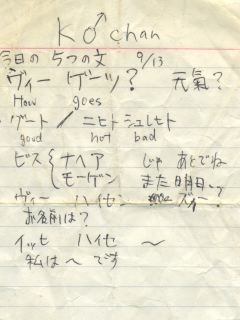 Kō♂chan
今日の 5つの文 9/13
ヴィー ゲーツ? 元氣?
How goes
グート / ニヒト シュレヒト
good not bad
ビス { ナヘア じゃ あとでね
モーゲン また明日
ヴィー ハイセン ズィー?
お名前は?
イッヒ ハイセ ～
私は～です